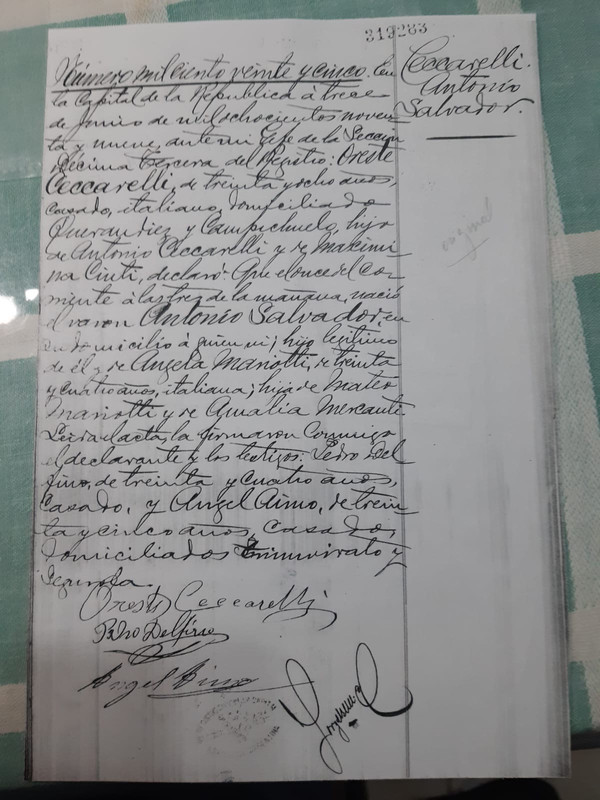 319283
Ceccarelli.
Antonio
Salvador.
Número mil ciento veinte y cinco. En
la Capital de la Republica á trece
de Junio de mil ochocientos noven-
ta y nueve, ante mi Jefe de la Sección
Décima tercera del Registro: Oreste
Ceccarelli, de treinta y ocho años,
casado, italiano, domiciliado
Querandiez y Campichuelo, hijo
de Antonio Ceccarelli y de Maximi-
na Ciuti, declaró: Que el once del co-
rriente á las tres de la mañana, nació
el varon Antonio Salvador, en
su domicilio á quien ví; hijo legítimo
de él y de Angela Mariotti, de treinta
y cuatro años, italiana; hija de Mateo
Mariotti y de Amalia Mercanti
Leida el acta, la firmaron conmigo
el declarante y los testigos: Pedro Del
fino, de treinta y cuatro años,
casado, y Angel Aimo, de trein
ta y cinco años, casado,
domiciliados Triunvirato y
Segunda.
Oreste Ceccarelli
Pedro Delfino
Angel Aimo